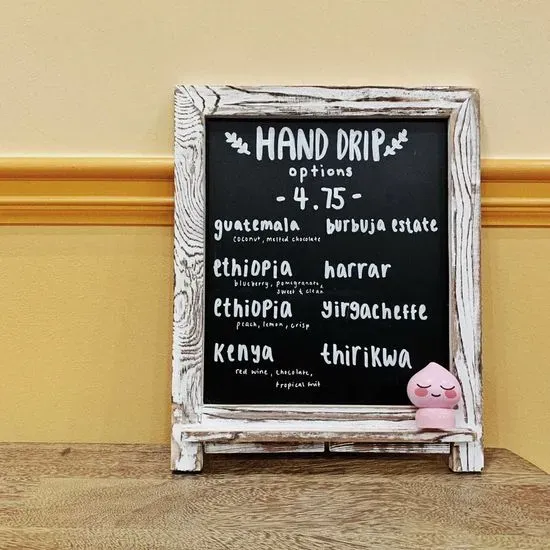 HAND DRIP
options
- 4.75 -
guatemala burbuja estate
coconut, melted chocolate
ethiopia harrar
blueberry, pomegranate,
sweet & clean
ethiopia yirgacheffe
peach, lemon, crisp
kenya thirikwa
red wine, chocolate,
tropical fruit